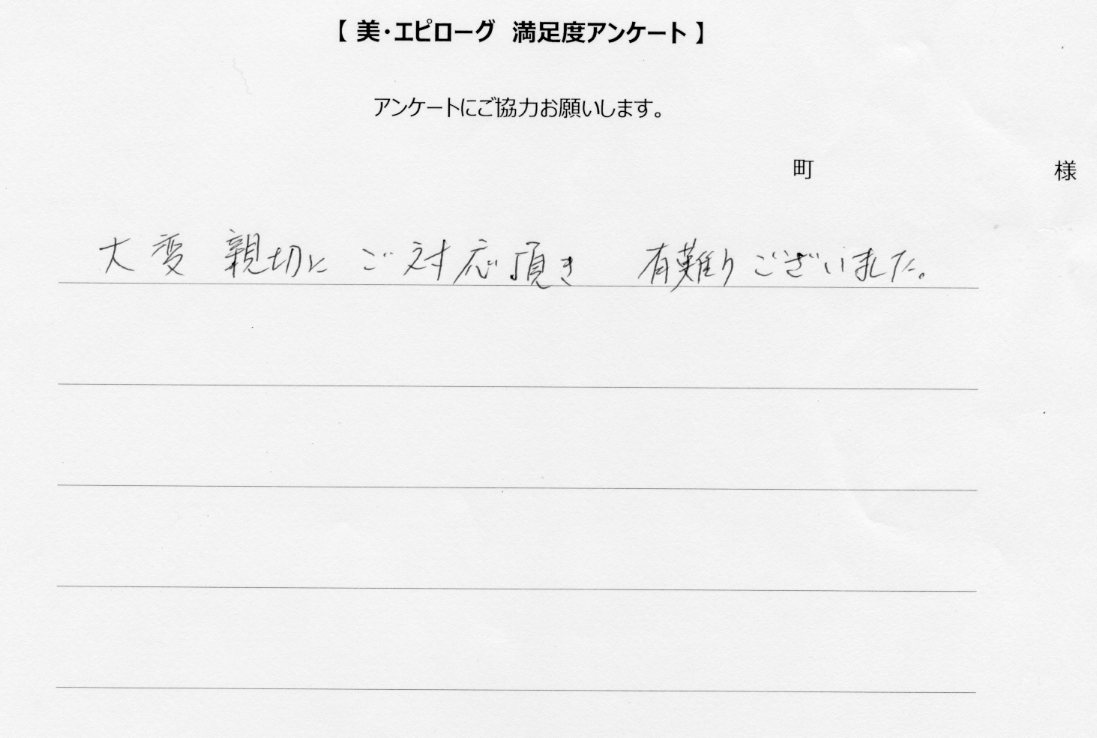 【 美・エピローグ 満足度アンケート 】
アンケートにご協力お願いします。
町 様
大変 親切に ご対応頂き 有難りございました。